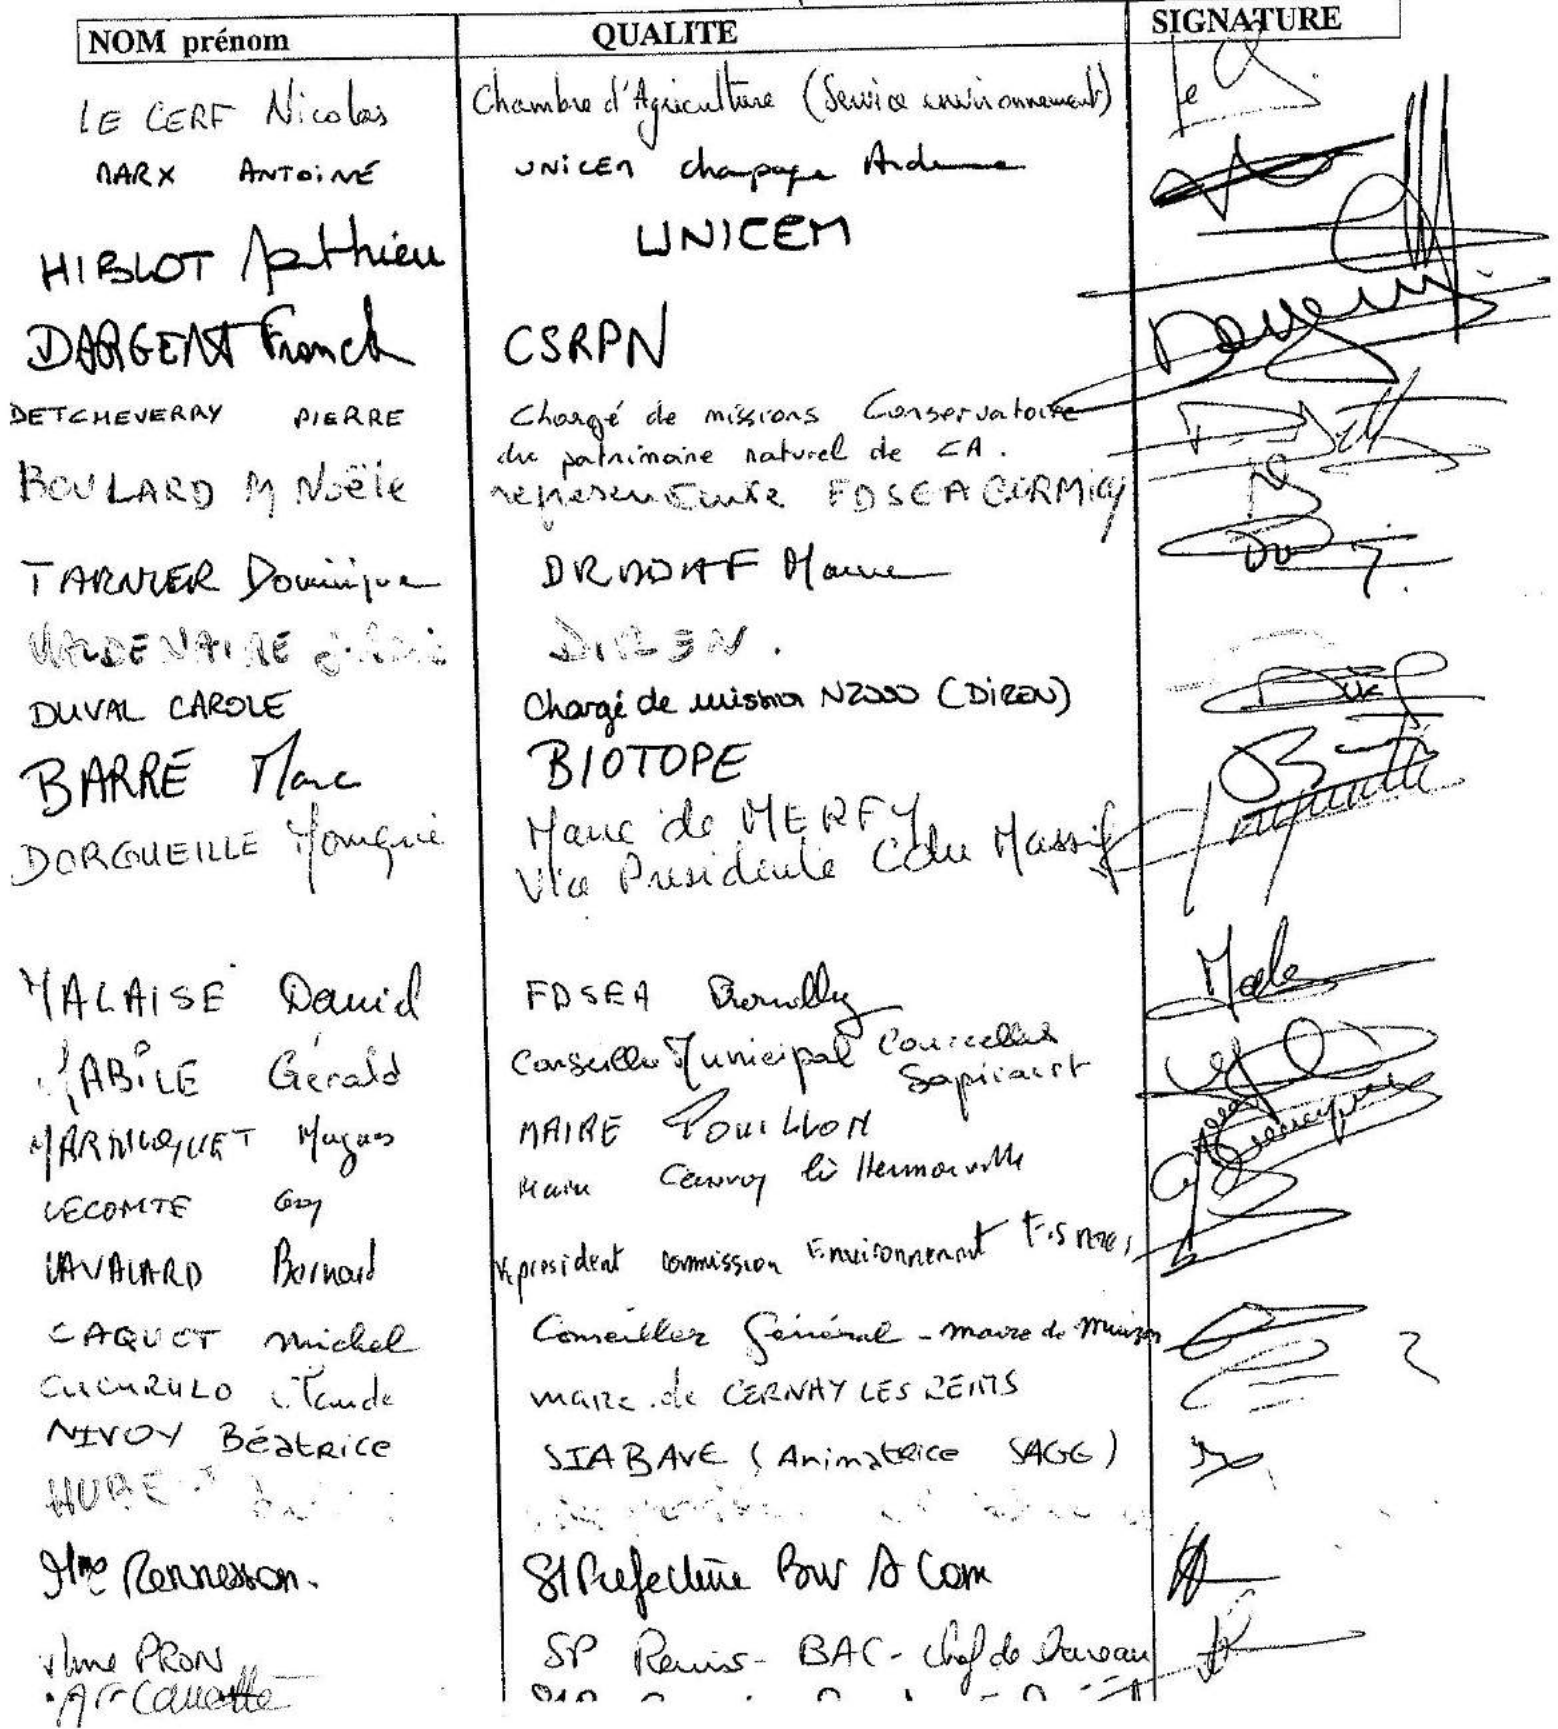 NOM prénom QUALITE SIGNATURE
LE CERF Nicolas Chambre d'Agriculture (Service environnement)
MARX ANTOINE UNICEM Ardenne
HIBLOT Matthieu UNICEM
DARGENT Franck CSRPN
DETCHEVERRY PIERRE Chargé de missions Conservatoire
du patrimoine naturel de CA.
BOULARD M Noële représentante FDSEA CORMICY
TARNIER Dominique Marne
VALDENAIRE DIREN.
DUVAL CAROLE Chargé de mission N2000 (DIREN)
BARRÉ Marc BIOTOPE
DORGUEILLE Monique Maire de MERFY
Vice Presidente Massif
MALAISE David FDSEA
Gérald Conseiller Municipal Courcelles
Sapicourt
Hugues MAIRE POUILLON
LECOMTE Guy Maire Cauroy les Hermonville
LAVALARD Bernard V. président commission Environnement
CAQUOT michel Conseiller Général - maire de Muizon
CUCURULO Claude maire de CERNAY LES REIMS
NIVOY Béatrice SIABAVE (Animatrice SAGE)
Mme Rennesson. S/Prefecture
Mme PRON SP Reims - BAC - chef de bureau